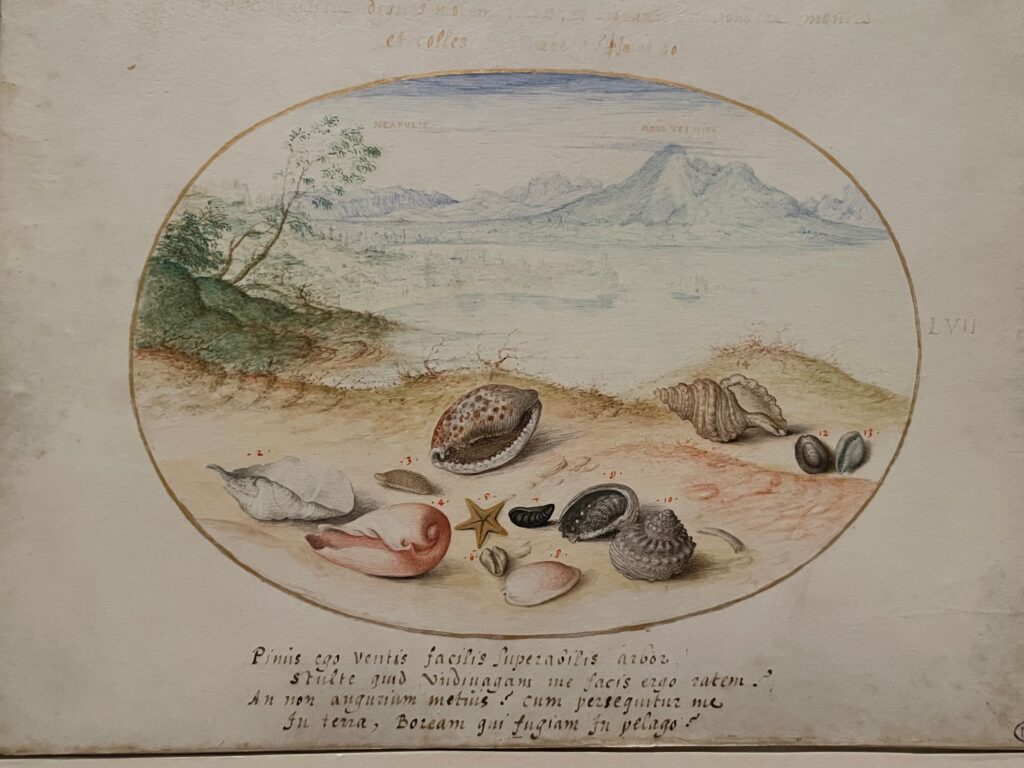 montes
et colles
NEAPOLIS
MONS
LVII
12
13
2
3
9
4
5
7
10
6
8
Pinus ego ventis facilis superabilis arbor
Stulte quid Vndiuagam me facis ergo ratem?
An non augurium metuis? Cum persequitur me
In terra, Boream qui fugiam In pelago?